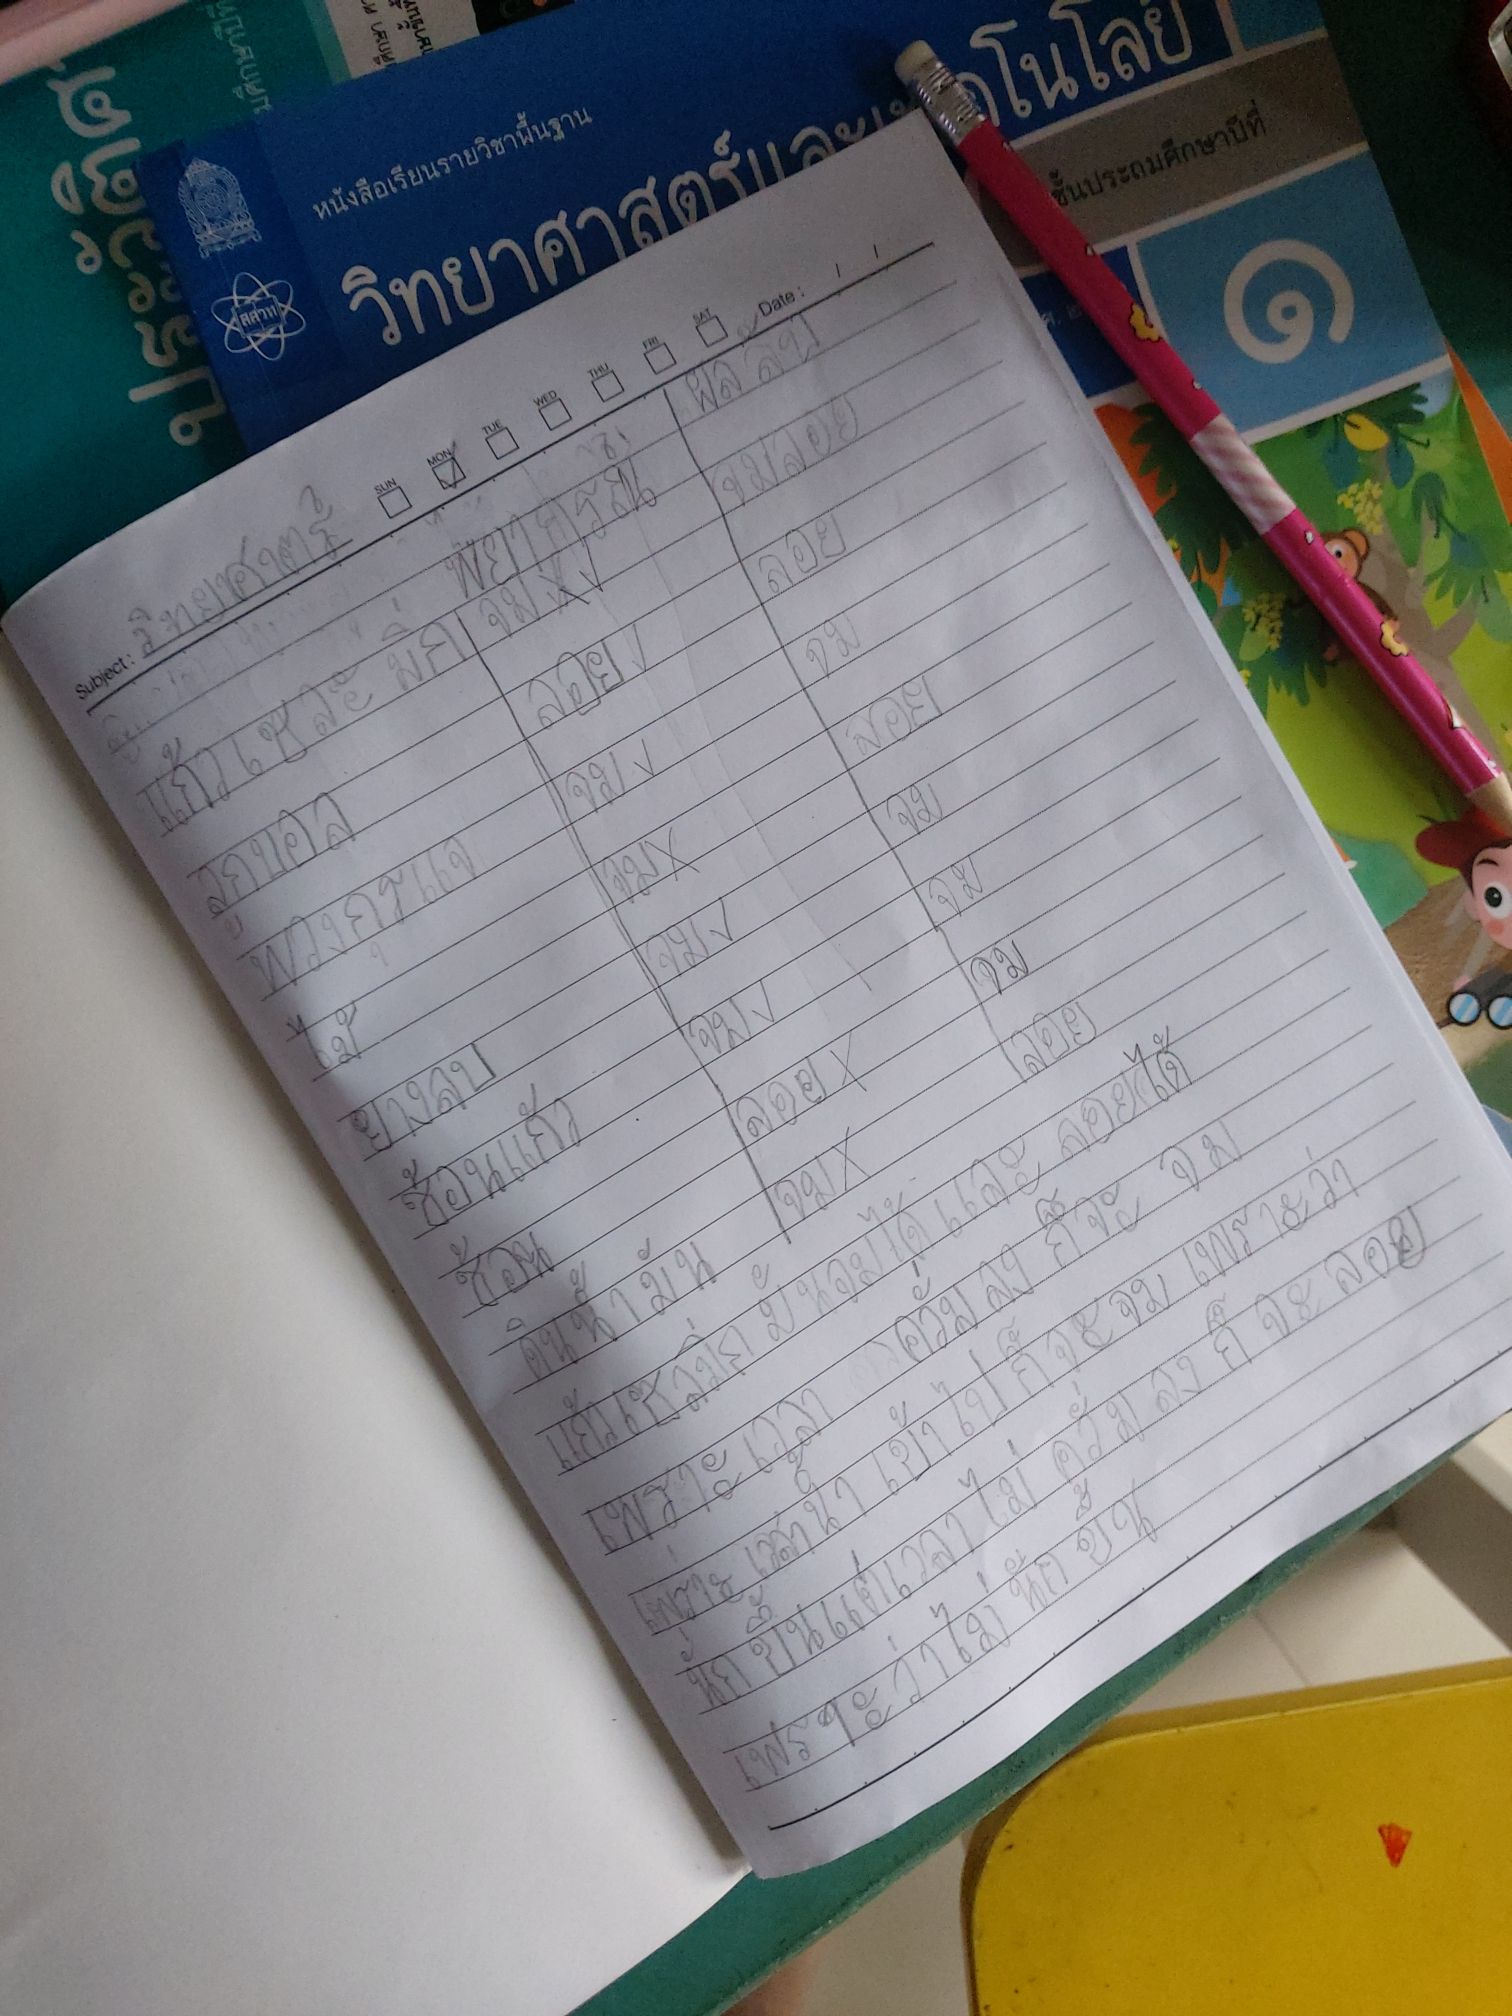 หนังสือเรียนรายวิชาพื้นฐาน
วิทยาศาสตร์และเทคโนโลยี
ชั้นประถมศึกษาปีที่
๑
สสวท
Subject: วิทยาศาตร์
SUN MON TUE WED THU FRI SAT Date:
พยากรณ์ ผลลัพ
แก้วเซละมิก จม X✓ จมลอย
ลูกบอล ลอย✓ ลอย
พวงกุรแจ จม✓ จม
ไม้ จมX ลอย
ยางลบ จม✓ จม
ช้อนแก้ว จม✓ จม
ช้อน ลอยX จม
ดินน้ำมัน จมX ลอย
แก้วเซลมิก มันจมได้ และ ลอยได้
เพราะ เวลา ควั่มลง ก็จะ จม
เพราะ เวลาน้ำ เข้าไป ก็จะจม เพราะว่า
นัก ขึ้นแต่เวลา ไม่ ควั่ม ลง ก็ จะ ลอย
เพราะว่าไม่ หนัก ขึ้น